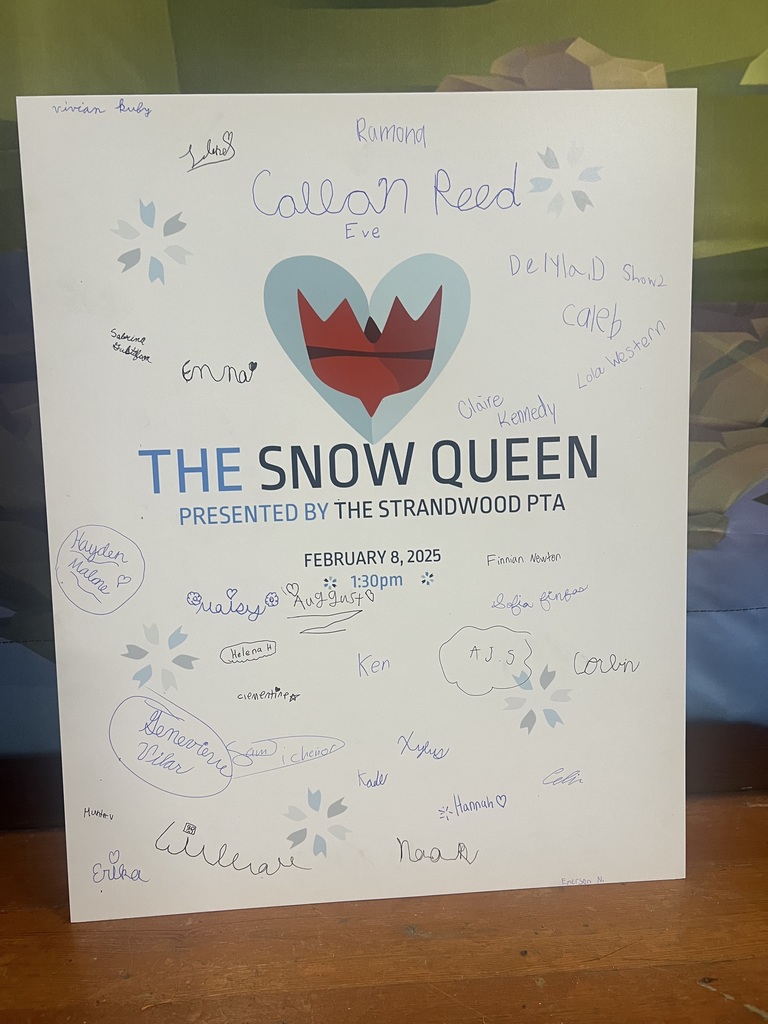 vivian kuby
Ramona
Callan Reed
Eve
Delyla.D Show2
Caleb
Lola Western
Sabrina
Emma
Claire
Kennedy
THE SNOW QUEEN
PRESENTED BY THE STRANDWOOD PTA
FEBRUARY 8, 2025
1:30pm
Finnian Newton
Hayden
Malone
Daisy
August
Sofia
Helena H
Ken
A.J.S
Corbin
clementine
Genevieve
Vilar
Sam
Xylus
Kade
Hannah
Hunter
Erika
Noah
Emerson N.